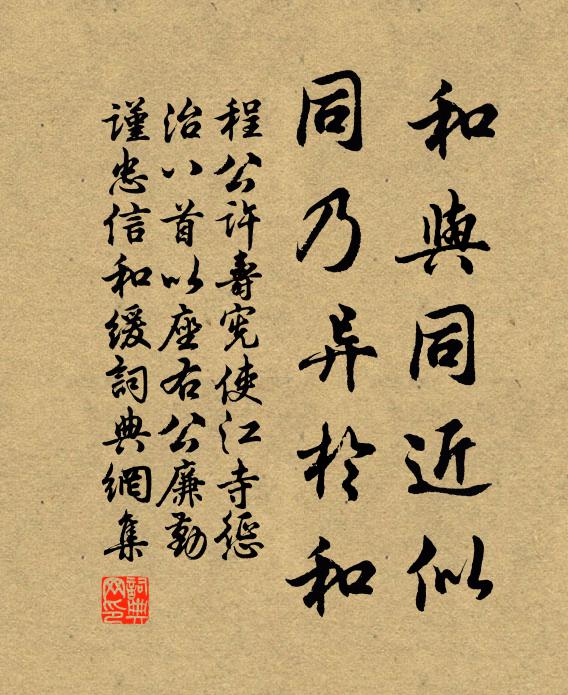 和與同近似
同乃异於和
程公許壽宪使江寺丞
治八首以座右公廉勤
謹忠信和缓詞典網集
詞典网印